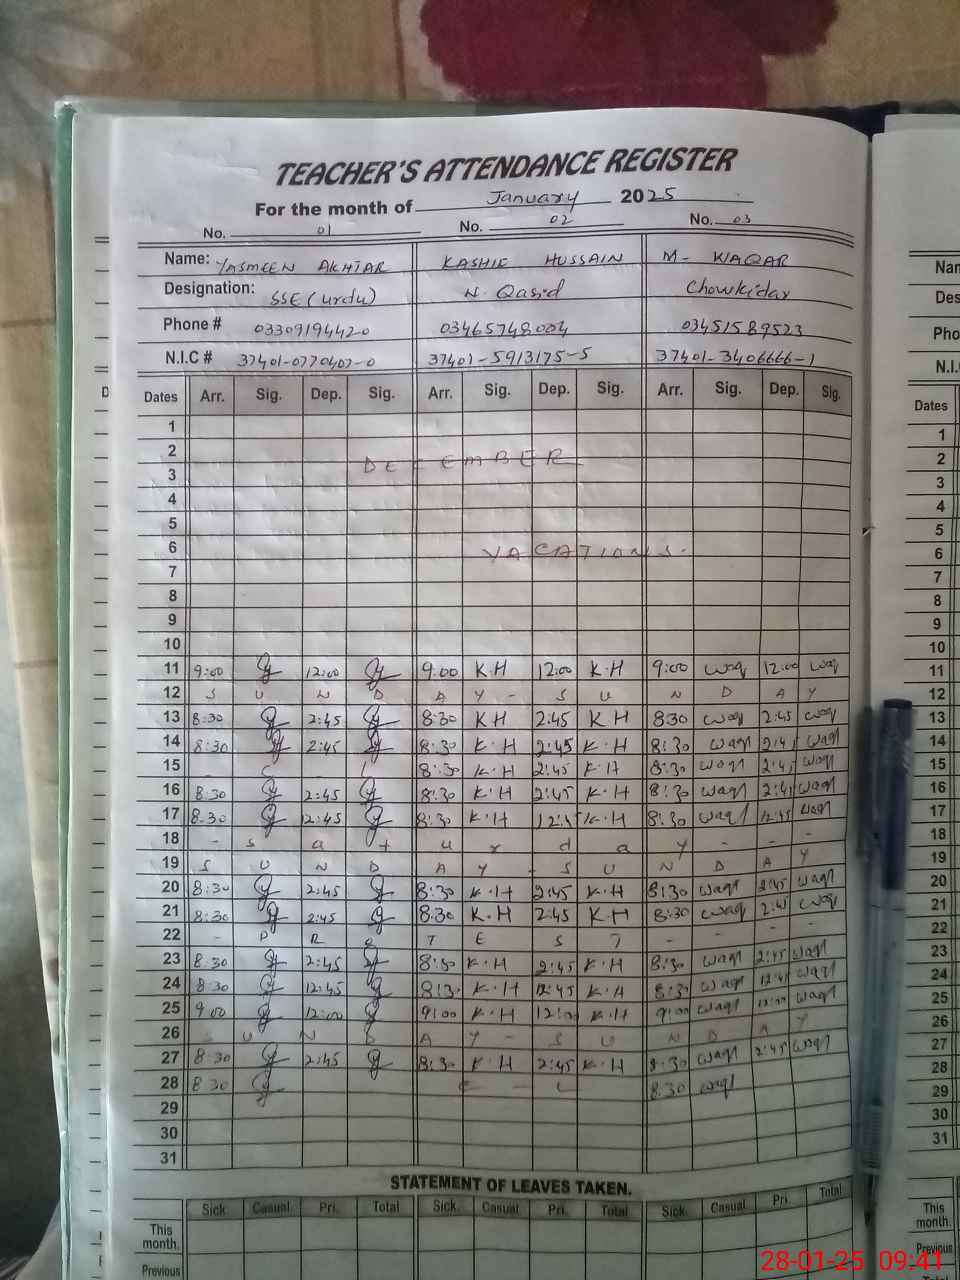 TEACHER'S ATTENDANCE REGISTER
For the month of January 2025
No. 01 No. 02 No. 03
Name: YASMEEN AKHTAR KASHIF HUSSAIN M- WAQAR
Designation: SSE (urdu) N. Qasid Chowkidar
Phone # 03309194420 03465748004 03451589523
N.I.C # 37401-0770407-0 37401-5913175-5 37401-3406666-1
Dates Arr. Sig. Dep. Sig. Arr. Sig. Dep. Sig. Arr. Sig. Dep. Sig.
1
2
DECEMBER
3
4
5
6 VACATIONS.
7
8
9
10
11 9:00 12:00 9.00 K.H 12:00 K.H 9:00 waq 12:00 waq
12 S U N D A Y - S U N D A Y
13 8:30 2:45 8:30 KH 2:45 K.H 8:30 waq 2:45 waq
14 8:30 2:45 8:30 K.H 2:45 K.H 8:30 waql 2:45 waql
15 - C - L 8:30 K.H 2:45 K.H 8:30 waql 2:45 waql
16 8.30 2:45 8:30 K.H 2:45 K.H 8:30 waql 2:45 waql
17 8.30 12:45 8:30 K.H 12:45 K.H 8.30 waql 12:45 waql
18 - S a t u r d a y - - -
19 S U N D A Y - S U N D A Y
20 8:30 2:45 8:30 K.H 2:45 K.H 8:30 waql 2:45 waql
21 8:30 2:45 8.30 K.H 2:45 K.H 8:30 waql 2:45 waq
22 - P R O T E S T - - - -
23 8.30 2:45 8:30 K.H 2:45 K.H 8:30 waql 2:45 waql
24 8:30 12:45 8:30 K.H 12:45 K.H 8:30 waql 12:45 waql
25 9:00 12:00 9:00 K.H 12:00 K.H 9:00 waql 12:00 waql
26 S U N D A Y - S U N D A Y
27 8:30 2:45 8:30 K.H 2:45 K.H 8:30 waql 2:45 waql
28 8:30 C - L 8.30 waql
29
30
31
STATEMENT OF LEAVES TAKEN.
Sick. Casual. Pri. Total Sick. Casual. Pri. Total Sick. Casual Pri. Total
This month.
Previous
Dates
1
2
3
4
5
6
7
8
9
10
11
12
13
14
15
16
17
18
19
20
21
22
23
24
25
26
27
28
29
30
31
This month.
Previous
28-01-25 09:41